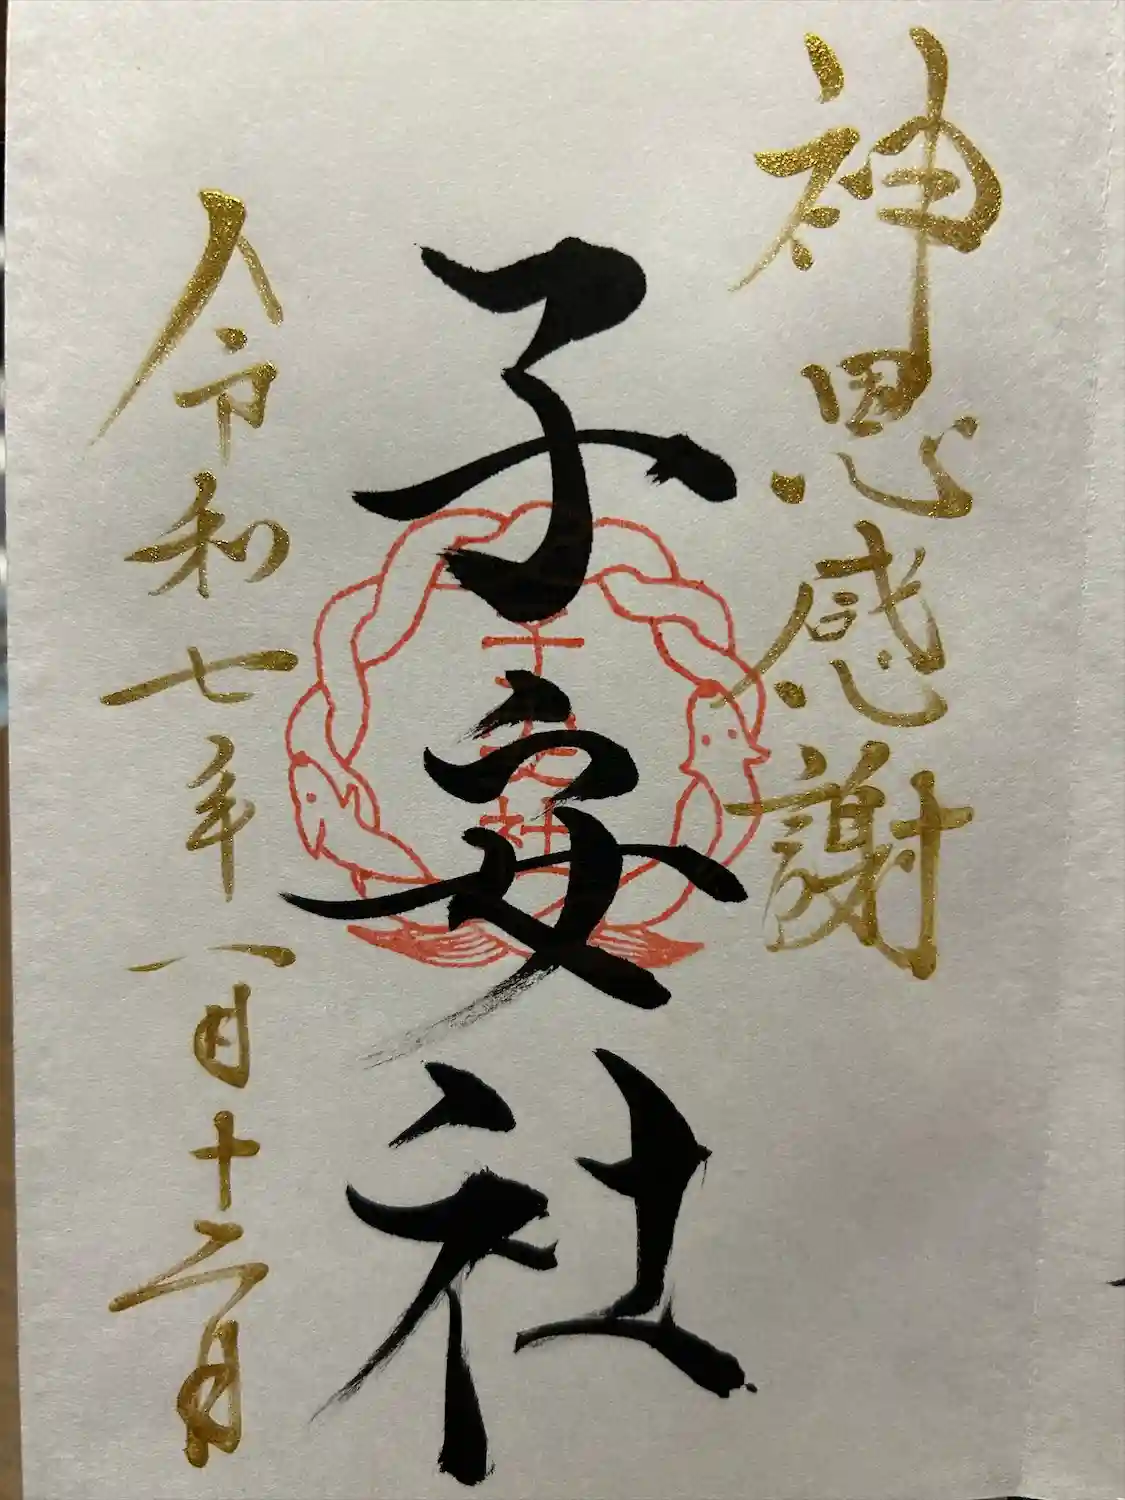 神恩感謝
子安社
子安社
令和七年一月十二日